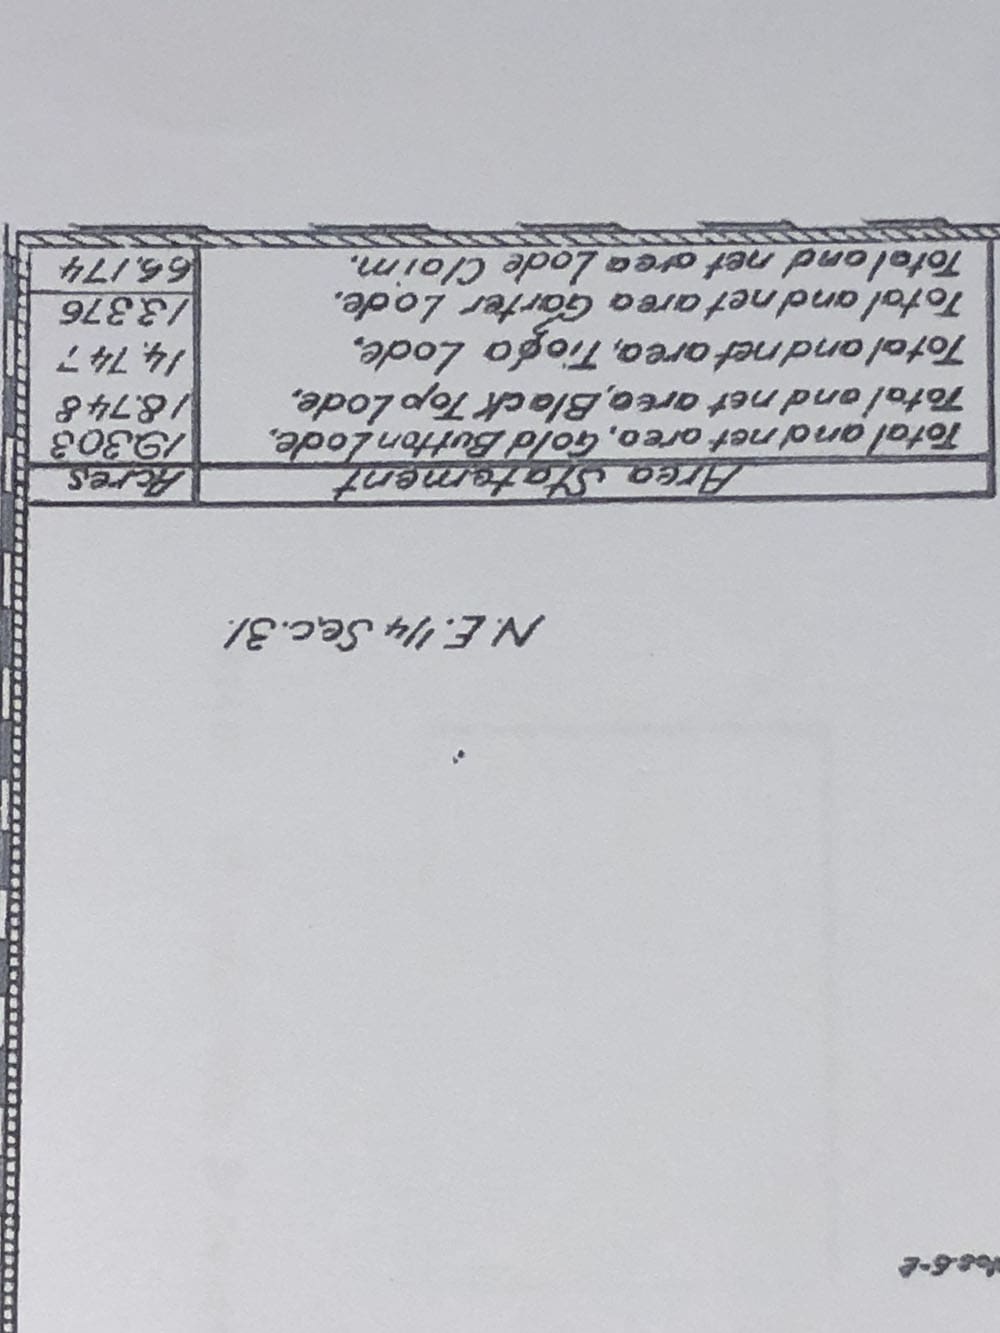 N.E. 1/4 Sec. 31.
Area Statement Acres
Total and net area, Gold Button Lode, 19.303
Total and net area, Black Top Lode, 18.748
Total and net area, Tioga Lode, 14.747
Total and net area Garter Lode. 13.376
Total and net area Lode Claim. 66.174